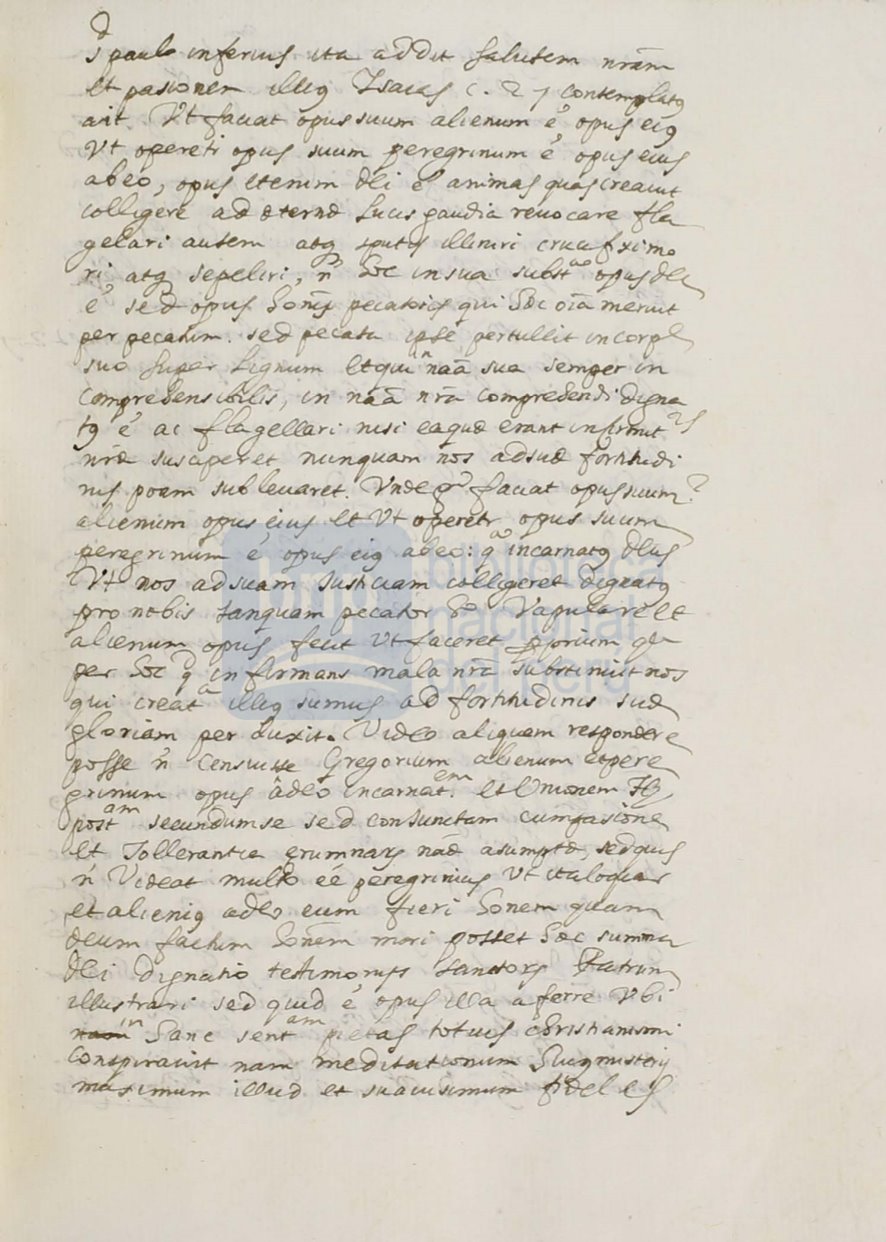 paulo inferius ita addit salutem nr̄am
et pasionem illius Isaias c. 27 contemplatq
ait Vt faciat opus suum alienum é opus eiq
Vt operetr opus suum peregrinum é opus eius
abeo, opus etenim dei é animas quas creavit
colligere ad æterne lucis gaudia revocare fla
gelari autem atq sputis illiniri crucifixi mo
ri, atq sepeliri, n̄ hoc in sua subst opus dei
é sed opus honis pecatoris qui hæc oia meruit
per pecatum. sed pecata ipse pertullit in corpe
suo super lignum et qui in naā sua semper in
comprehensibilis, in naā nrā comprehendi digna
tq é ac flagellari nisi ea quæ erant infirmit
nræ susciperet nunquam nos ad suæ fortitudi
nis poam sublevaret. Vnde faciat opus suum
alienum opus eius et Vt operetr opus suum
peregrinum é opus eiq abeo: q incarnatq deus
Vt nos ad suam Justiciam colligeret dignatq
pro nobis tanquam pecator Vapulare et
alienum opus fecit Vt faceret pprium
per hoc q infirmans mala nrā substinuit nos
qui creata illiq sumus ad fortitudinis suæ
gloriam per duxit. Video aliquem respondere
posse n̄ censuisse Gregorium alienum et pere
grinum opus â deo incarnatem. et Vnionem
postam secundum se sed conjunctam cum pasione
et Tollerantia erumnarq naæ asumptæ, sed quis
n̄ Videat multo éé peregrinius Vt ita loquar
et alieniq a deo eum fieri honem quam
deum factum honem mori posset hæc summa
dei dignatio testimonijs sanctorq Patrum
illustrari sed quid é opus illa aferre Vbi
in hanc sentam pietas totius christianismi
conspiravit nam meditationum huiq misterij
maximum illud et suavisimum fideles